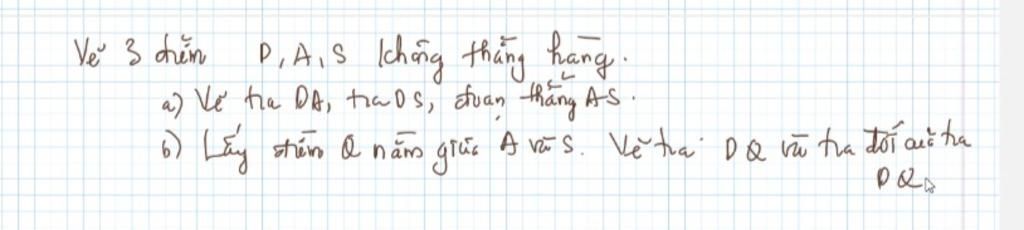 Vẽ 3 điểm D, A, S không thẳng hàng.
a) Vẽ tia DA, tia DS, đoạn thẳng AS.
b) Lấy điểm Q nằm giữa A và S. Vẽ tia DQ và tia đối của tia
DQ.